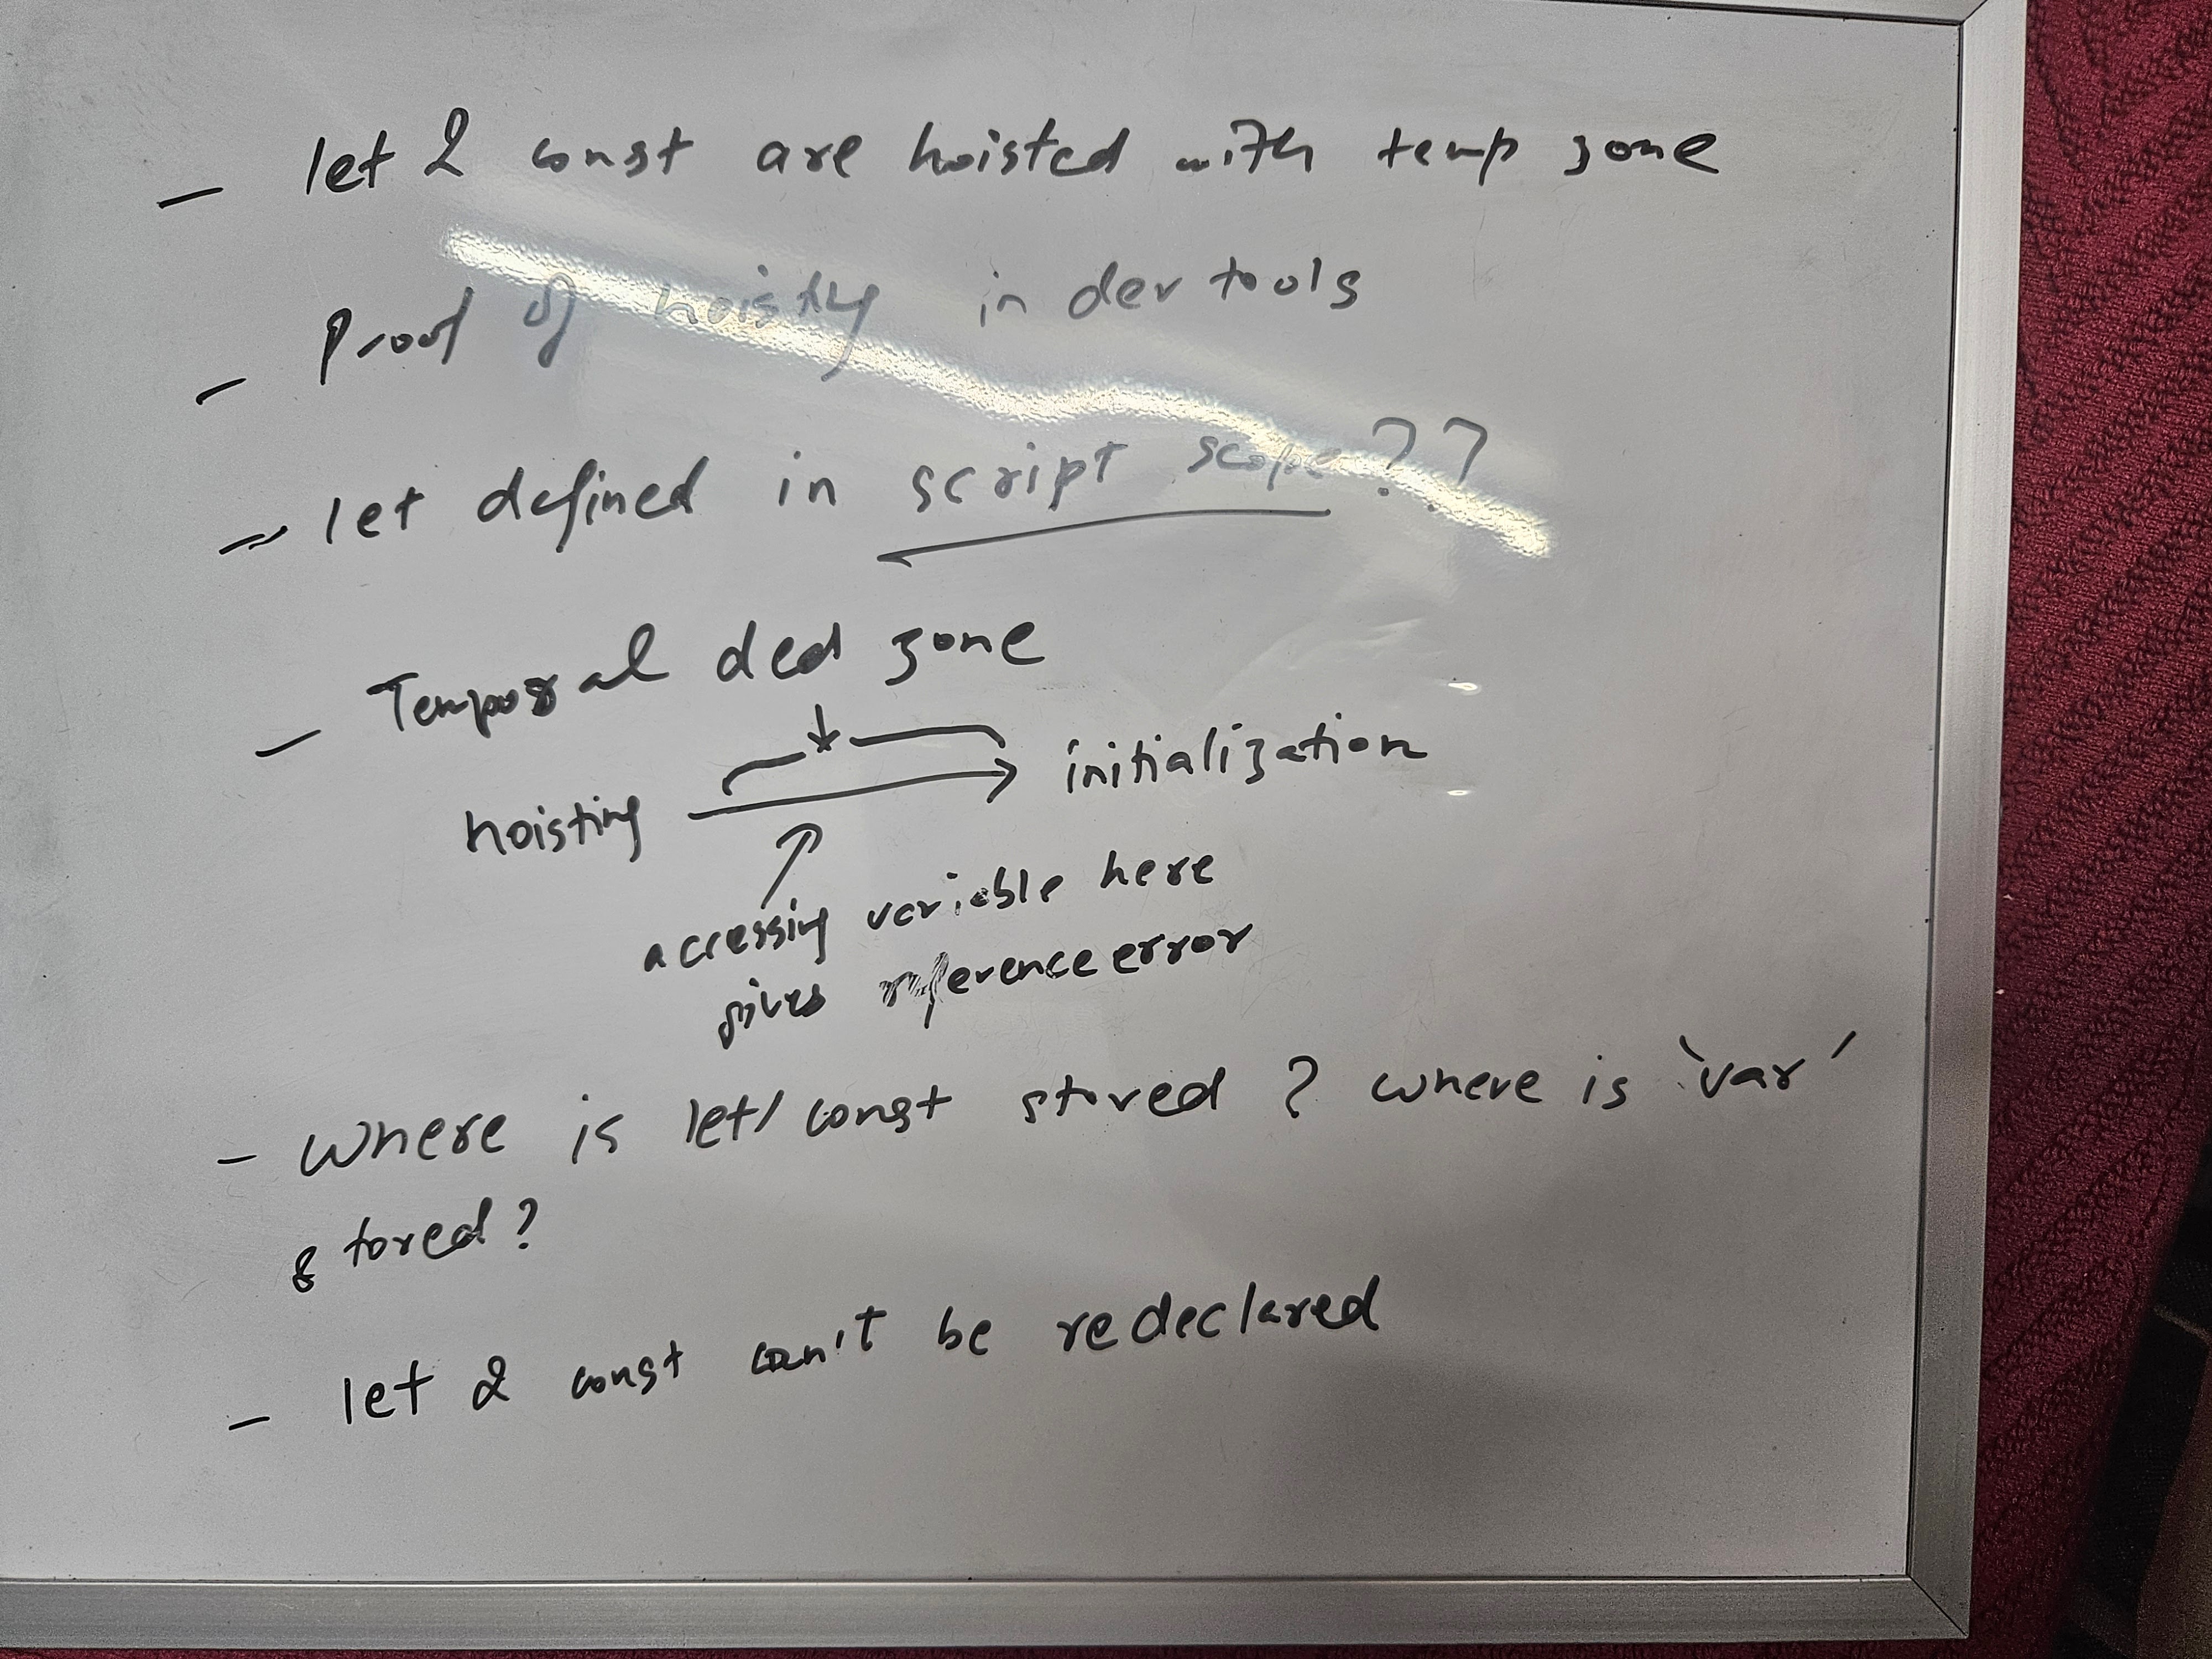 - let & const are hoisted with temp zone
- Proof of hoisting in dev tools
- let defined in script scope??
- Temporal ded zone
hoisting → initialization
accessing variable here
gives reference error
- Where is let/const stored? where is `var'
stored?
- let & const can't be redeclared